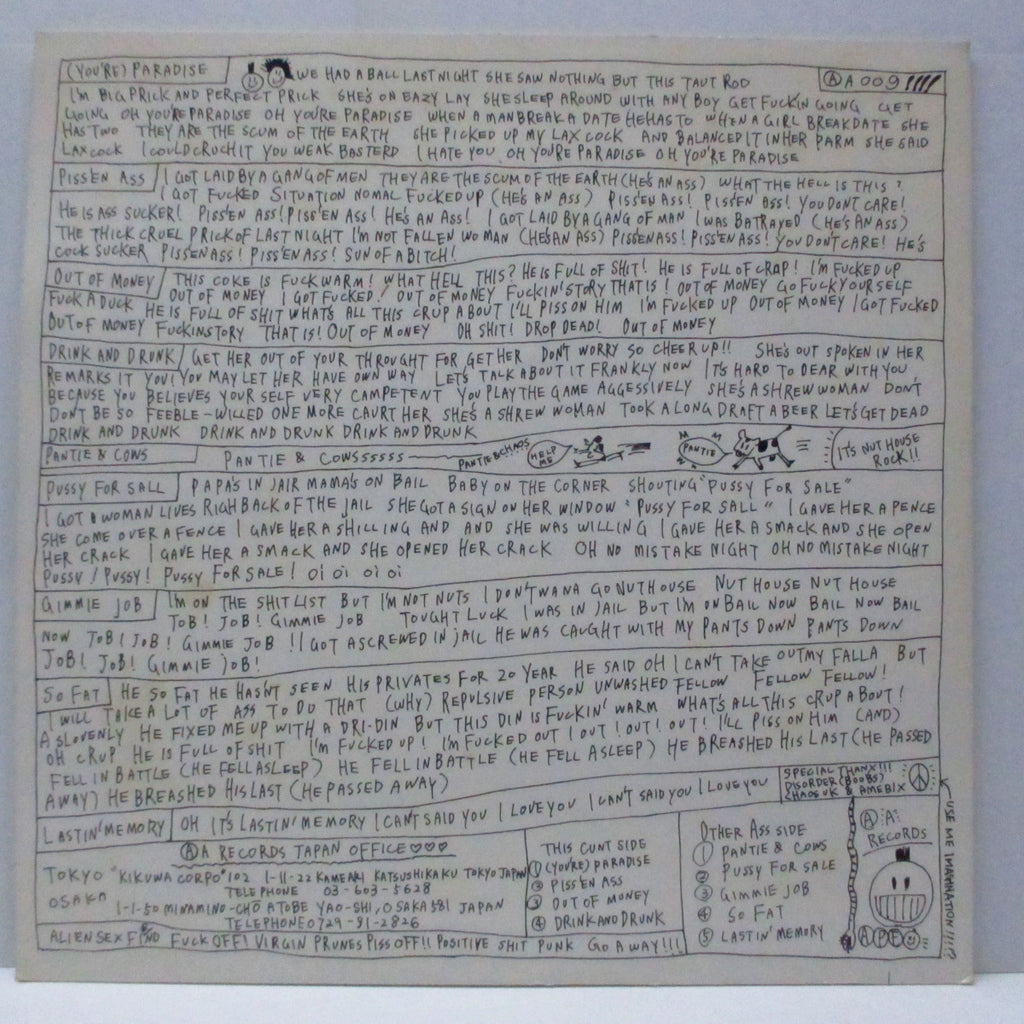 (YOU'RE) PARADISE WE HAD A BALL LAST NIGHT SHE SAW NOTHING BUT THIS TAUT ROD Ⓐ A 009
I'M BIG PRICK AND PERFECT PRICK SHE'S ON EAZY LAY SHE SLEEP AROUND WITH ANY BOY GET FUCKIN GOING GET
GOING OH YOU'RE PARADISE OH YOU'RE PARADISE WHEN A MAN BREAK A DATE HE HAS TO WHEN A GIRL BREAK DATE SHE
HAS TWO THEY ARE THE SCUM OF THE EARTH SHE PICKED UP MY LAX COCK AND BALANCED IT IN HER PARM SHE SAID
LAX COCK I COULD CRUCH IT YOU WEAK BASTERD I HATE YOU OH YOU'RE PARADISE OH YOU'RE PARADISE
PISS'EN ASS I GOT LAID BY A GANG OF MEN THEY ARE THE SCUM OF THE EARTH (HE'S AN ASS) WHAT THE HELL IS THIS?
I GOT FUCKED SITUATION NOMAL FUCKED UP (HE'S AN ASS) PISS'EN ASS! PISS'EN ASS! YOU DONT CARE!
HE IS ASS SUCKER! PISS'EN ASS! PISS'EN ASS! HE'S AN ASS! I GOT LAID BY A GANG OF MAN I WAS BATRAYED (HE'S AN ASS)
THE THICK CRUEL PRICK OF LAST NIGHT I'M NOT FALLEN WOMAN (HE'S AN ASS) PISS'EN ASS! PISS'EN ASS! YOU DON'T CARE! HE'S
COCK SUCKER PISS'EN ASS! PISS'EN ASS! SUN OF A BITCH!
OUT OF MONEY THIS COKE IS FUCK WARM! WHAT HELL THIS? HE IS FULL OF SHIT! HE IS FULL OF CRAP! I'M FUCKED UP
OUT OF MONEY I GOT FUCKED! OUT OF MONEY FUCKIN'STORY THAT IS! OUT OF MONEY GO FUCK YOURSELF
FUCK A DUCK HE IS FULL OF SHIT WHATS ALL THIS CRUP ABOUT I'LL PISS ON HIM I'M FUCKED UP OUT OF MONEY I GOT FUCKED
OUT OF MONEY FUCKINSTORY THAT IS! OUT OF MONEY OH SHIT! DROP DEAD! OUT OF MONEY
DRINK AND DRUNK GET HER OUT OF YOUR THROUGHT FOR GET HER DON'T WORRY SO CHEER UP!! SHE'S OUT SPOKEN IN HER
REMARKS IT YOU! YOU MAY LET HER HAVE OWN WAY LET'S TALK ABOUT IT FRANKLY NOW IT'S HARD TO DEAR WITH YOU
BECAUSE YOU BELIEVES YOUR SELF VERY COMPETENT YOU PLAY THE GAME AGGESSIVELY SHE'S A SHREW WOMAN DON'T
DON'T BE SO FEEBLE-WILLED ONE MORE CAURT HER SHE'S A SHREW WOMAN TOOK A LONG DRAFT A BEER LET'S GET DEAD
DRINK AND DRUNK DRINK AND DRUNK DRINK AND DRUNK
PANTIE & COWS PANTIE & COWSSSSSS PANTIE & CHAOS HELP ME PANTIE IT'S NUT HOUSE
ROCK!!
PUSSY FOR SALL PAPA'S IN JAIR MAMA'S ON BAIL BABY ON THE CORNER SHOUTING "PUSSY FOR SALE"
I GOT A WOMAN LIVES RIGH BACK OF THE JAIL SHE GOT A SIGN ON HER WINDOW "PUSSY FOR SALL" I GAVE HER A PENCE
SHE COME OVER A FENCE I GAVE HER A SHILLING AND AND SHE WAS WILLING I GAVE HER A SMACK AND SHE OPEN
HER CRACK I GAVE HER A SMACK AND SHE OPENED HER CRACK OH NO MISTAKE NIGHT OH NO MISTAKE NIGHT
PUSSY! PUSSY! PUSSY FOR SALE! oi oi oi oi
GIMMIE JOB I'M ON THE SHIT LIST BUT I'M NOT NUTS I DON'T WANA GO NUTHOUSE NUT HOUSE NUT HOUSE
JOB! JOB! GIMMIE JOB TOUGHT LUCK I WAS IN JAIL BUT I'M ON BAIL NOW BAIL NOW BAIL
NOW JOB! JOB! GIMMIE JOB!! I GOT A SCREWED IN JAIL HE WAS CAUGHT WITH MY PANTS DOWN PANTS DOWN
JOB! JOB! GIMMIE JOB!
SO FAT HE SO FAT HE HASN'T SEEN HIS PRIVATES FOR 20 YEAR HE SAID OH I CAN'T TAKE OUT MY FALLA BUT
I WILL TAKE A LOT OF ASS TO DO THAT (WHY) REPULSIVE PERSON UNWASHED FELLOW FELLOW FELLOW!
A SLOVENLY HE FIXED ME UP WITH A DRI-DIN BUT THIS DIN IS FUCKIN' WARM WHAT'S ALL THIS CRUP ABOUT!
OH CRUP HE IS FULL OF SHIT I'M FUCKED UP! I'M FUCKED OUT! OUT! OUT! OUT! I'LL PISS ON HIM (AND)
FELL IN BATTLE (HE FELL ASLEEP) HE FELL IN BATTLE (HE FELL ASLEEP) HE BREASHED HIS LAST (HE PASSED
AWAY) HE BREASHED HIS LAST (HE PASSED AWAY)
SPECIAL THANX!!!
DISORDER (BOOBS)
CHAOS UK & AMEBIX
LASTIN' MEMORY OH IT'S LASTIN' MEMORY I CAN'T SAID YOU I LOVE YOU I CAN'T SAID YOU I LOVE YOU
ⒶA RECORDS JAPAN OFFICE♡♡♡
TOKYO "KIKUWA CORPO" 102 1-11-22 KAMEARI KATSUSHIKAKU TOKYO JAPAN
TELEPHONE 03-603-5628
OSAKA
1-1-50 MINAMINO-CHŌ ATOBE YAO-SHI, OSAKA 581 JAPAN
TELEPHONE 0729-91-2826
THIS CUNT SIDE
① (YOU'RE) PARADISE
② PISS'EN ASS
③ OUT OF MONEY
④ DRINK AND DRUNK
OTHER ASS SIDE
① PANTIE & COWS
② PUSSY FOR SALE
③ GIMMIE JOB
④ SO FAT
⑤ LASTIN' MEMORY
Ⓐ A
RECORDS
APE
USE ME IMAHINATION!!!!?
ALIEN SEX FIEND FUCK OFF! VIRGIN PRUNES PISS OFF!! POSITIVE SHIT PUNK GO AWAY!!!